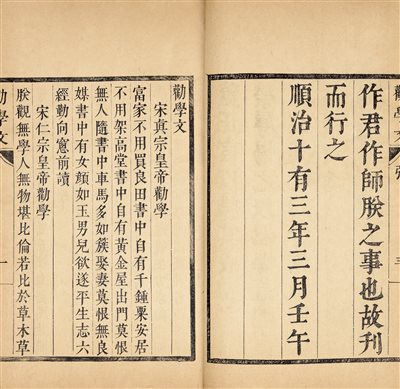 作君作師朕之事也故刊
而行之
順治十有三年三月壬午
勸學文
宋真宗皇帝勸學
富家不用買良田書中自有千鍾粟安居
不用架高堂書中自有黃金屋出門莫恨
無人隨書中車馬多如簇娶妻莫恨無良
媒書中有女顏如玉男兒欲遂平生志六
經勤向窻前讀
宋仁宗皇帝勸學
朕觀無學人無物堪比倫若比於草木草
勸學文 一